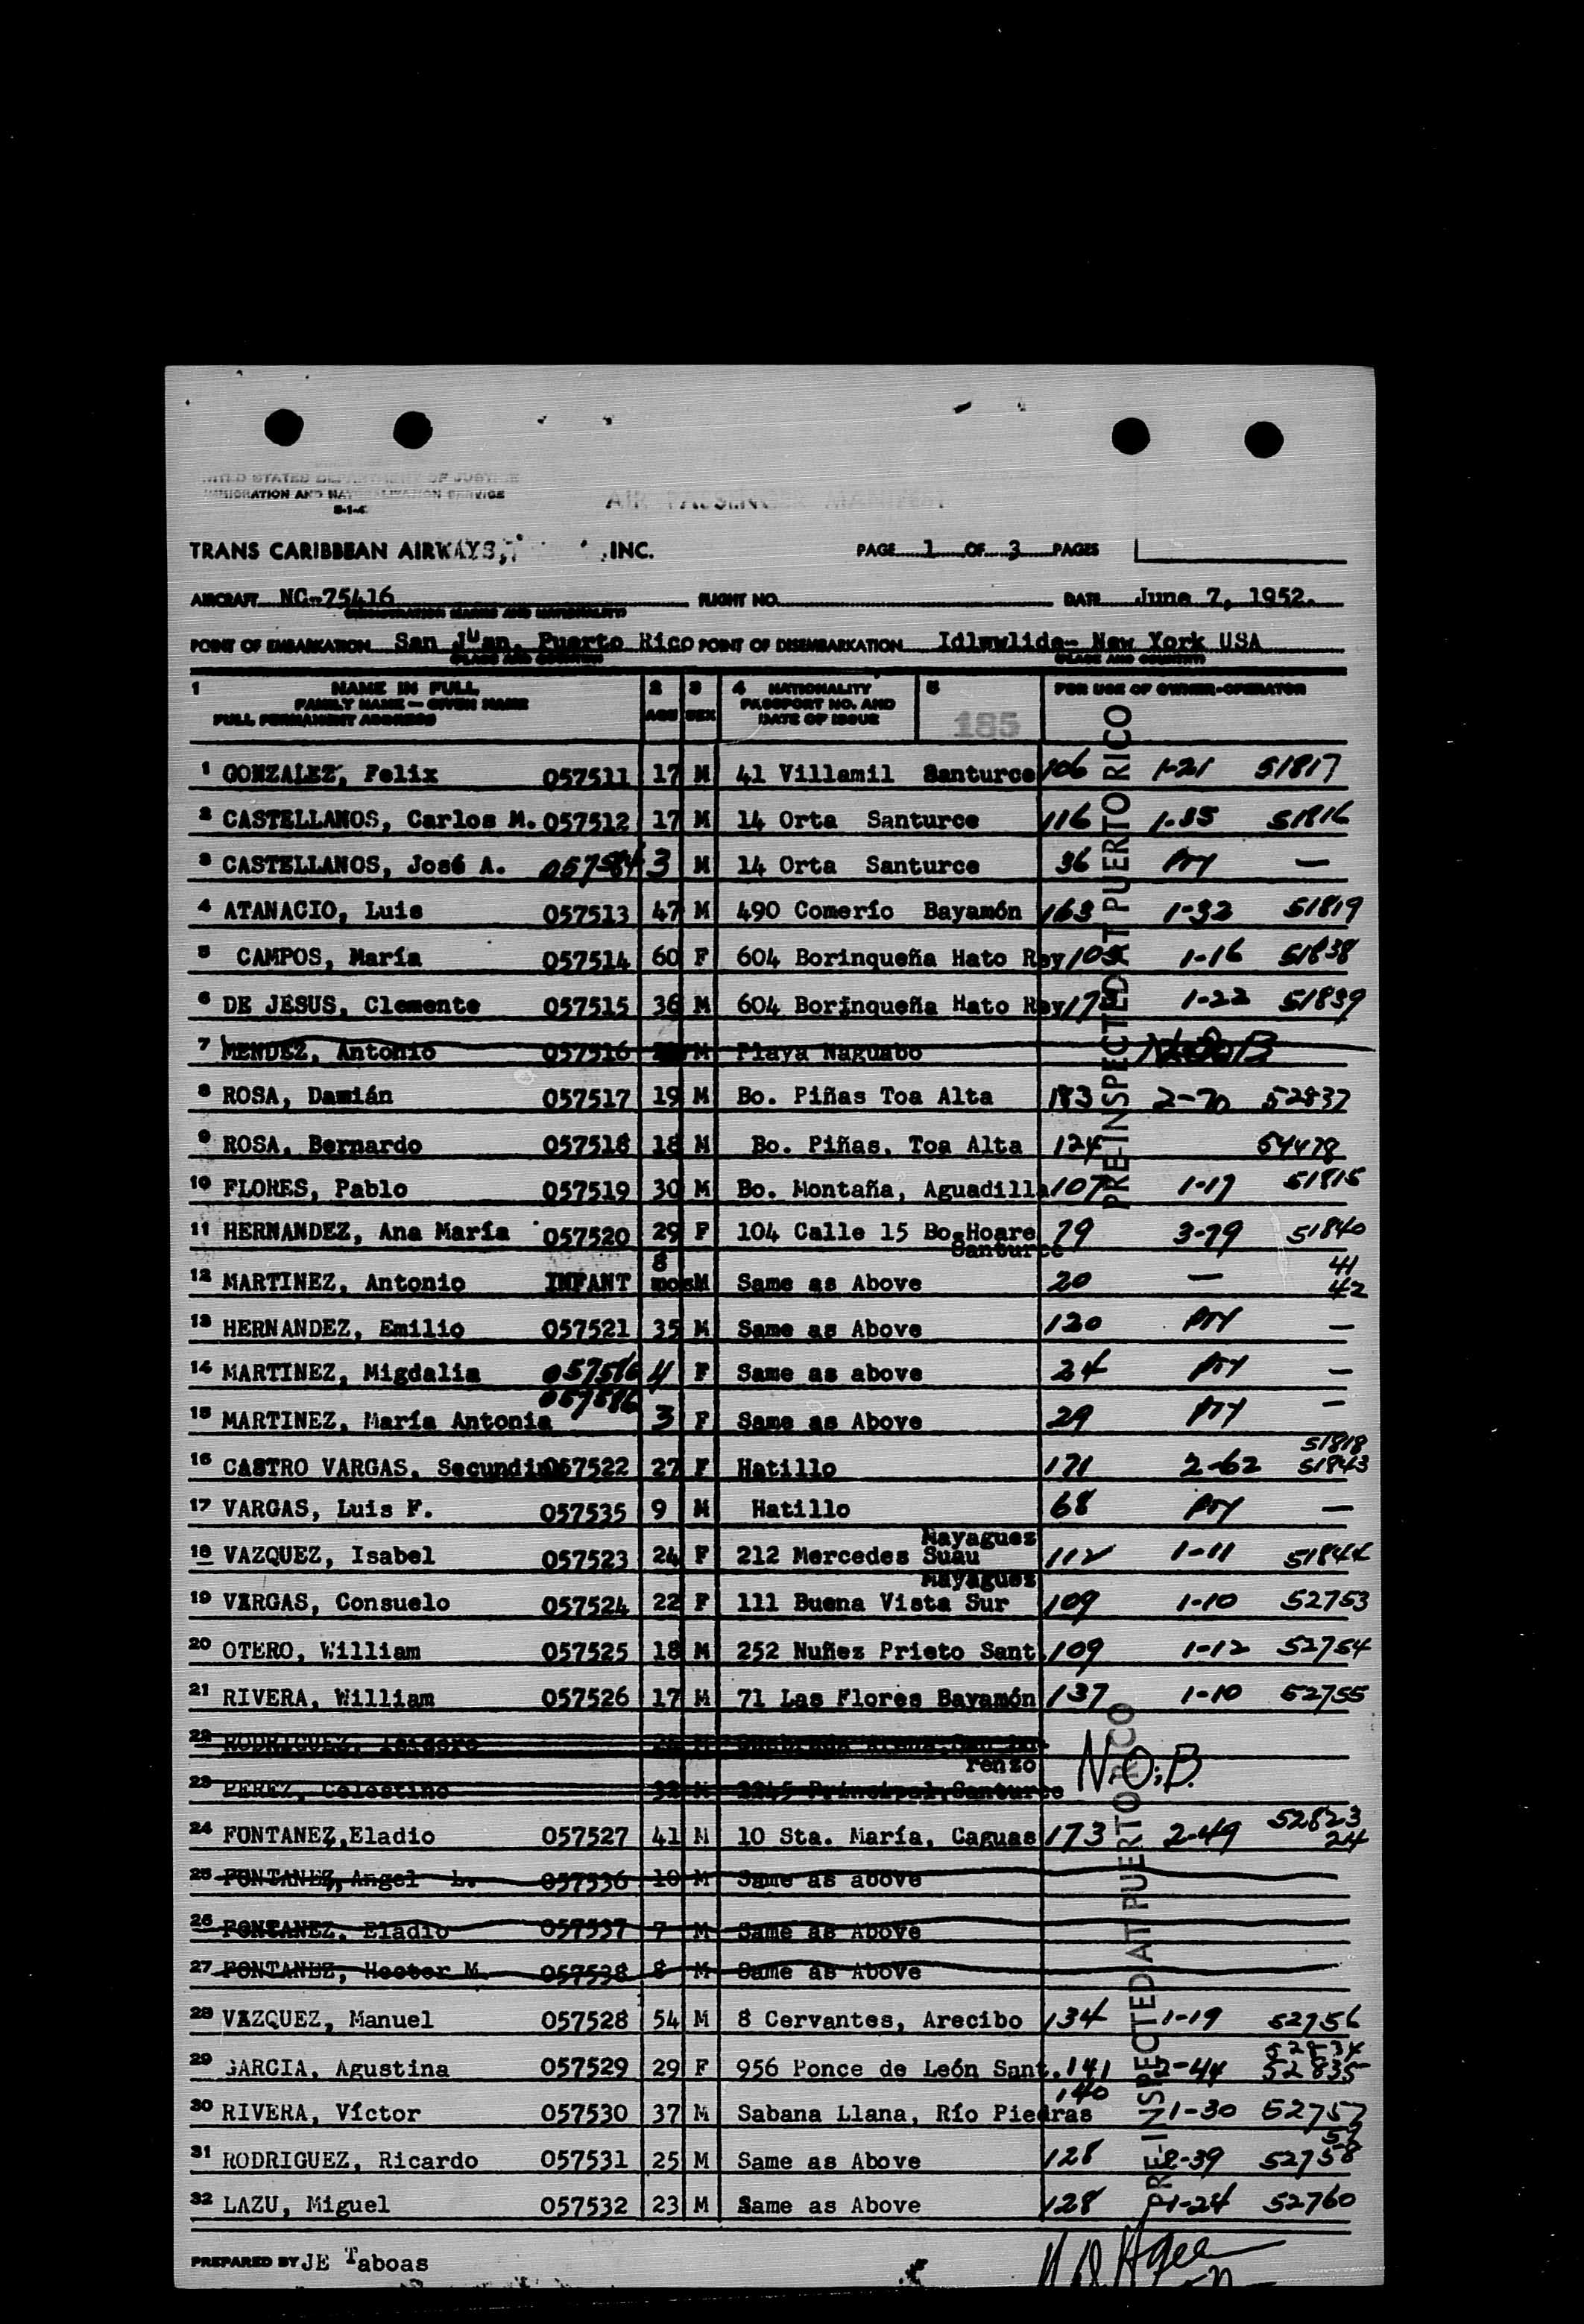 UNITED STATES DEPARTMENT OF JUSTICE
IMMIGRATION AND NATURALIZATION SERVICE
AIR PASSENGER MANIFEST
TRANS CARIBBEAN AIRWAYS, INC. PAGE 1 OF 3 PAGES
AIRCRAFT NC-75416 FLIGHT NO. DATE June 7, 1952.
(REGISTRATION MARKS AND NATIONALITY)
POINT OF EMBARKATION San Juan, Puerto Rico POINT OF DISEMBARKATION Idlewlide- New York USA
(PLACE AND COUNTRY) (PLACE AND COUNTRY)
1 NAME IN FULL 2 3 4 NATIONALITY 5 FOR USE OF OWNER-OPERATOR
FAMILY NAME — GIVEN NAME PASSPORT NO. AND
FULL PERMANENT ADDRESS AGE SEX DATE OF ISSUE 185
PRE-INSPECTED AT PUERTO RICO
1 GONZALEZ, Felix 057511 17 M 41 Villamil Santurce 106 1-21 51817
2 CASTELLANOS, Carlos M. 057512 17 M 14 Orta Santurce 116 1-35 51816
3 CASTELLANOS, José A. 3 M 14 Orta Santurce 36 Pty —
4 ATANACIO, Luis 057513 47 M 490 Comerío Bayamón 163 1-32 51819
5 CAMPOS, María 057514 60 F 604 Borinqueña Hato Rey 1-16 51838
6 DE JESUS, Clemente 057515 36 M 604 Borinqueña Hato Rey 1-22 51839
7 MENDEZ, Antonio 057516 M Playa Naguabo N.O.B
8 ROSA, Damián 057517 19 M Bo. Piñas Toa Alta 183 2-70 52837
9 ROSA, Bernardo 057518 18 M Bo. Piñas, Toa Alta 124 54478
10 FLORES, Pablo 057519 30 M Bo. Montaña, Aguadilla 107 1-17 51815
11 HERNANDEZ, Ana María 057520 29 F 104 Calle 15 Bo. Hoare 79 3-79 51840
Santurce
12 MARTINEZ, Antonio INFANT 8 mos M Same as Above 20 — 41
42
13 HERNANDEZ, Emilio 057521 35 M Same as Above 120 Pty —
14 MARTINEZ, Migdalia 4 F Same as above 24 Pty —
057586
15 MARTINEZ, María Antonia 3 F Same as Above 29 Pty —
51818
16 CASTRO VARGAS, Secundina 057522 27 F Hatillo 171 2-62 51843
17 VARGAS, Luis F. 057535 9 M Hatillo 68 Pty —
Mayaguez
18 VAZQUEZ, Isabel 057523 24 F 212 Mercedes Suau 112 1-11 51844
Mayaguez
19 VARGAS, Consuelo 057524 22 F 111 Buena Vista Sur 109 1-10 52753
20 OTERO, William 057525 18 M 252 Nuñez Prieto Sant. 109 1-12 52754
21 RIVERA, William 057526 17 M 71 Las Flores Bayamón 137 1-10 52755
PRE-INSPECTED AT PUERTO RICO
22 RODRIGUEZ, Isidoro M Quebrada Arena, San Lo-
renzo N.O.B.
23 PEREZ, Celestino 32 M 2245 Principal, Santurce
24 FONTANEZ, Eladio 057527 41 M 10 Sta. María, Caguas 173 2-49 52823
24
25 FONTANEZ, Angel L. 057536 10 M Same as above
26 FONTANEZ, Eladio 057537 7 M Same as Above
27 FONTANEZ, Hector M. 057538 8 M Same as Above
28 VAZQUEZ, Manuel 057528 54 M 8 Cervantes, Arecibo 134 1-19 52756
52834
29 GARCIA, Agustina 057529 29 F 956 Ponce de León Sant. 141 2-44 52835
30 RIVERA, Víctor 057530 37 M Sabana Llana, Río Piedras 140 1-30 52757
31 RODRIGUEZ, Ricardo 057531 25 M Same as Above 128 2-39 52758
32 LAZU, Miguel 057532 23 M Same as Above 128 1-24 52760
PREPARED BY JE Taboas